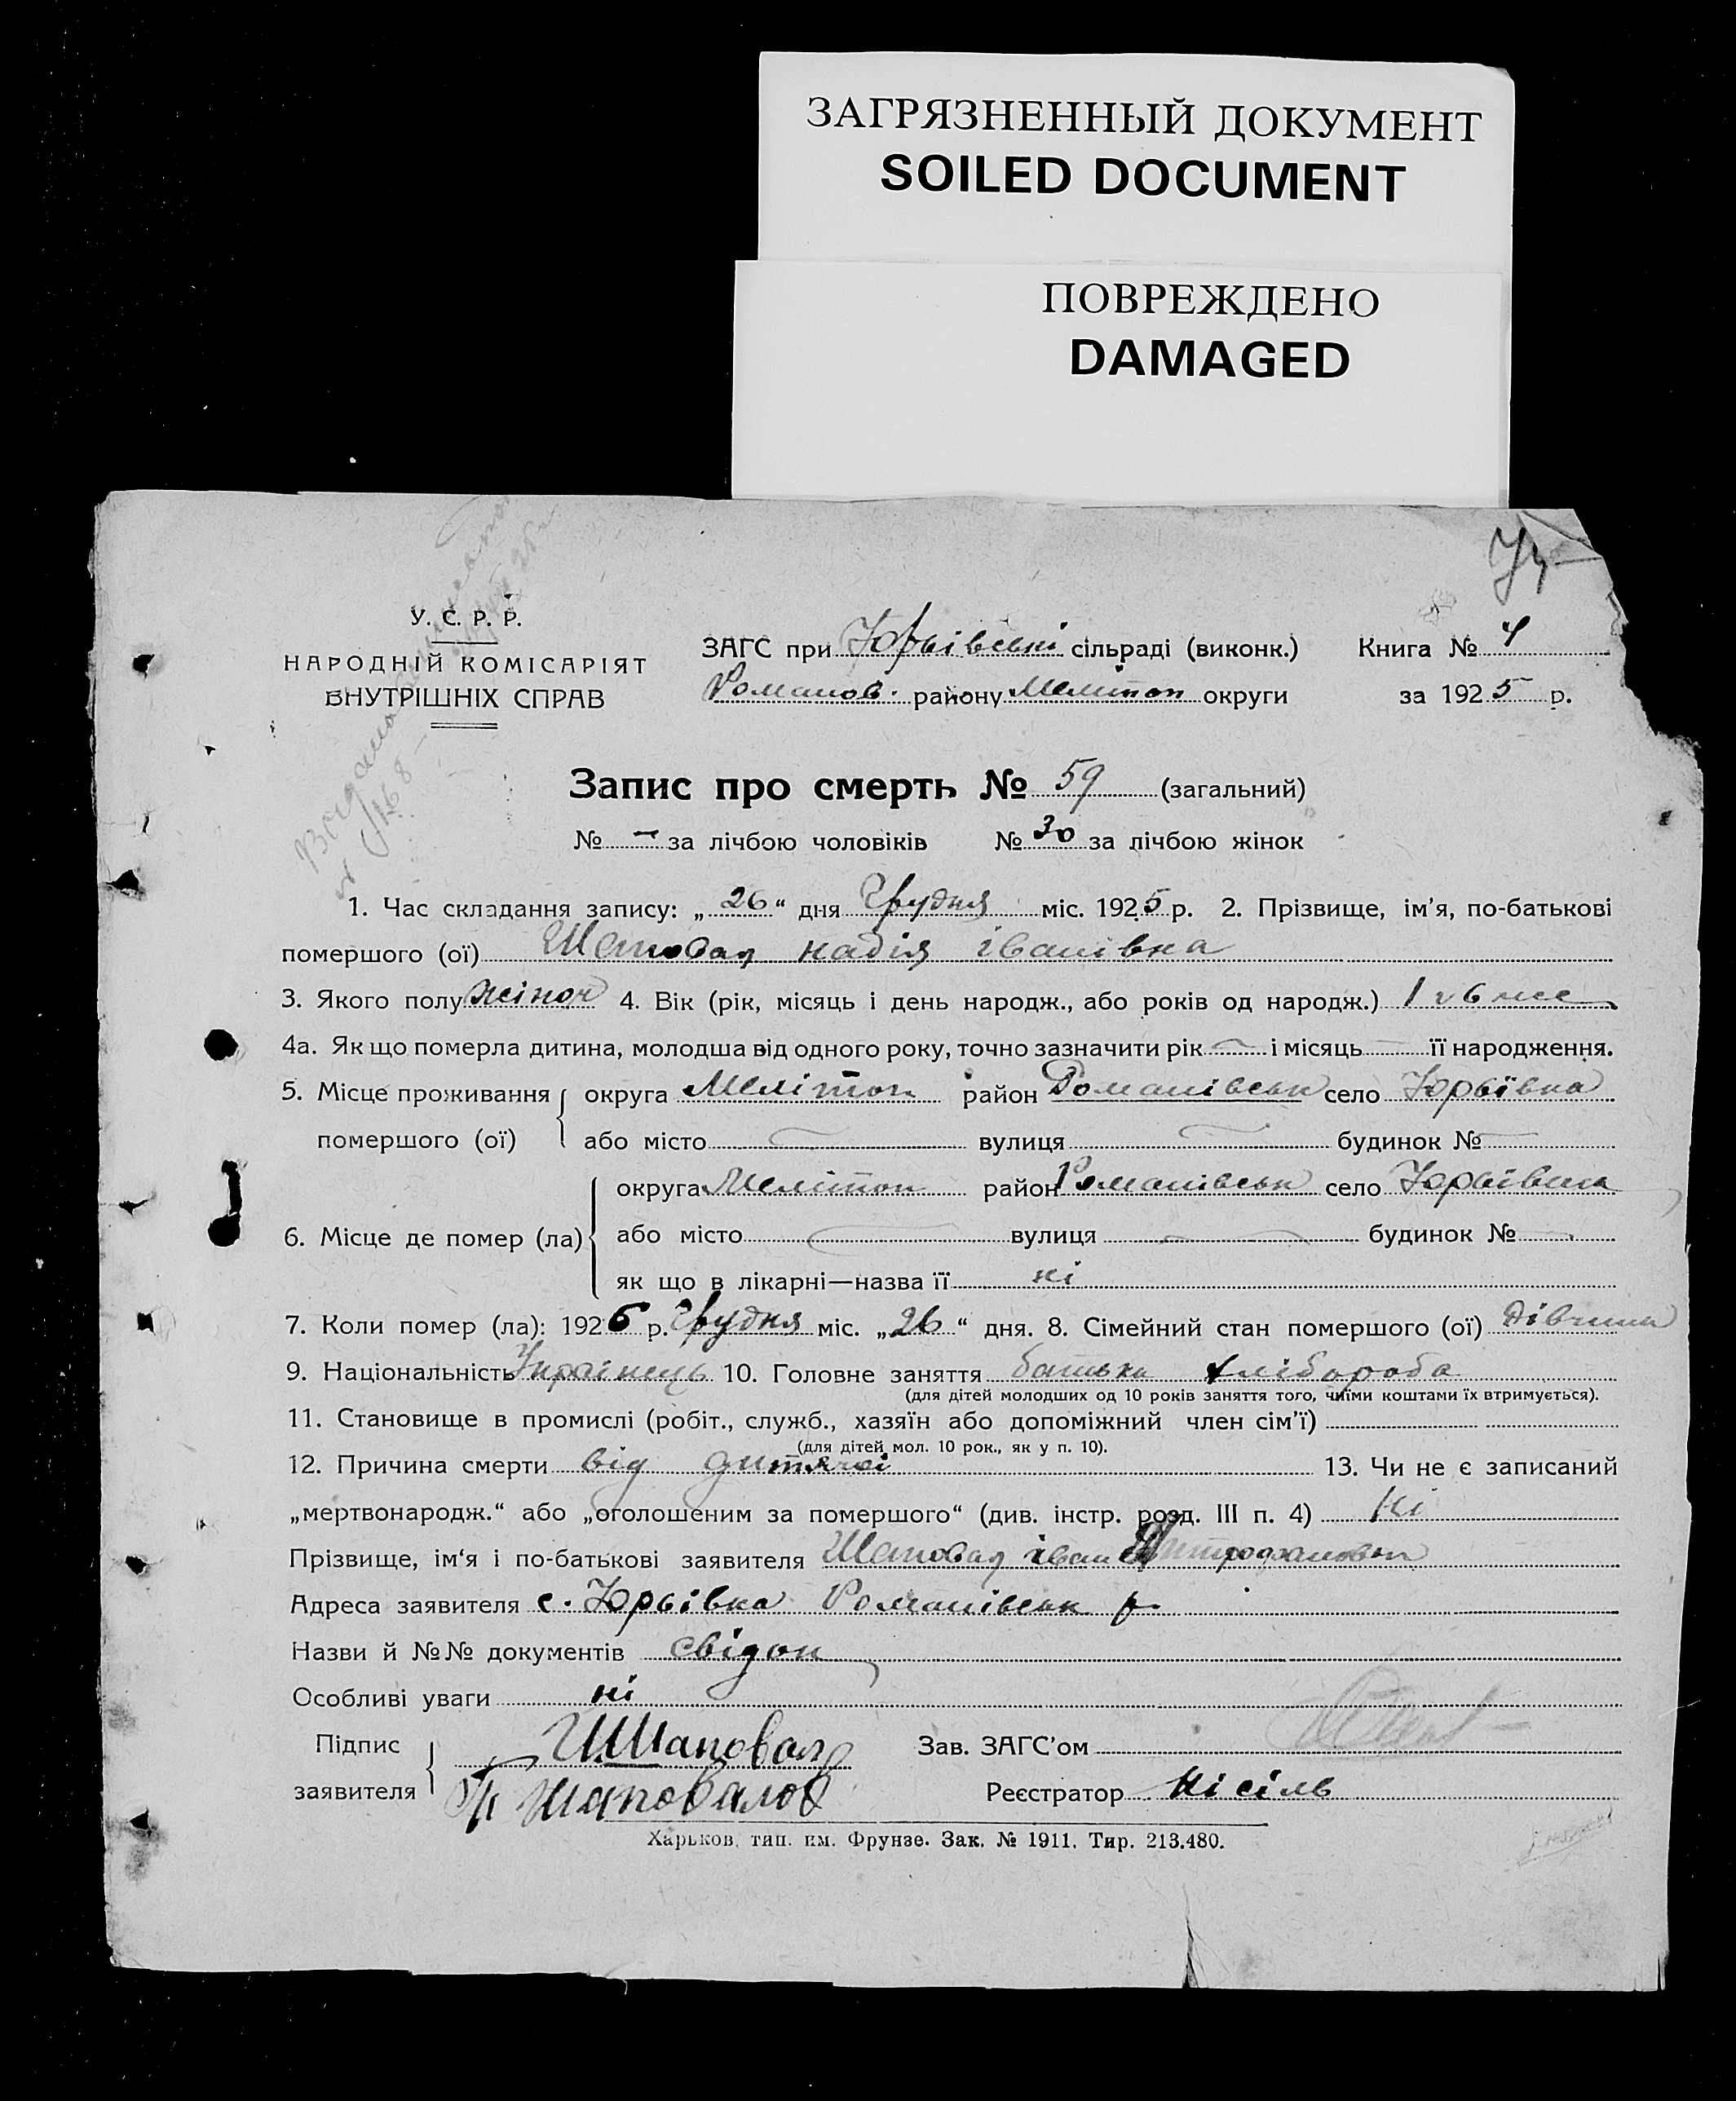 ЗАГРЯЗНЕННЫЙ ДОКУМЕНТ
SOILED DOCUMENT
ПОВРЕЖДЕНО
DAMAGED
У. С. Р. Р.
НАРОДНІЙ КОМІСАРІЯТ
ВНУТРІШНІХ СПРАВ
ЗАГС при Юрьівські сільраді (виконк.) Книга № 4
Романов. району Мелітоп округи за 1925 р.
Запис про смерть № 59 (загальний)
№ — за лічбою чоловіків № 30 за лічбою жінок
1. Час складання запису: „26“ дня Грудня міс. 1925 р. 2. Прізвище, ім’я, по-батькові
помершого (ої) Шаповал надія іванівна
3. Якого полу жіноч 4. Вік (рік, місяць і день народж., або років од народж.) 1 г 6 мес
4а. Як що померла дитина, молодша від одного року, точно зазначити рік — і місяць — її народження.
5. Місце проживання помершого (ої) округа Мелітоп район Романівськ село Юрьівка
або місто — вулиця — будинок № —
6. Місце де помер (ла) округа Мелітоп район Романівськ село Юрьівка
або місто — вулиця — будинок № —
як що в лікарні—назва її ні
7. Коли помер (ла): 1925 р. Грудня міс. „26“ дня. 8. Сімейний стан помершого (ої) дівчина
9. Національність Украінець 10. Головне заняття батька хлібороба
(для дітей молодших од 10 років заняття того, чиїми коштами їх втримується).
11. Становище в промислі (робіт., служб., хазяїн або допоміжний член сім’ї)
(для дітей мол. 10 рок., як у п. 10).
12. Причина смерти від дитячоі 13. Чи не є записаний
„мертвонародж.“ або „оголошеним за помершого“ (див. інстр. розд. III п. 4) Ні
Прізвище, ім‘я і по-батькові заявителя Шаповал іван Митрофанович
Адреса заявителя с. Юрьівка Романівськ р
Назви й №№ документів свідок
Особливі уваги ні
Підпис заявителя И Шаповал Зав. ЗАГС’ом
Шаповалов Реєстратор Кісіль
Харьков, тип. им. Фрунзе. Зак. № 1911. Тир. 213.480.